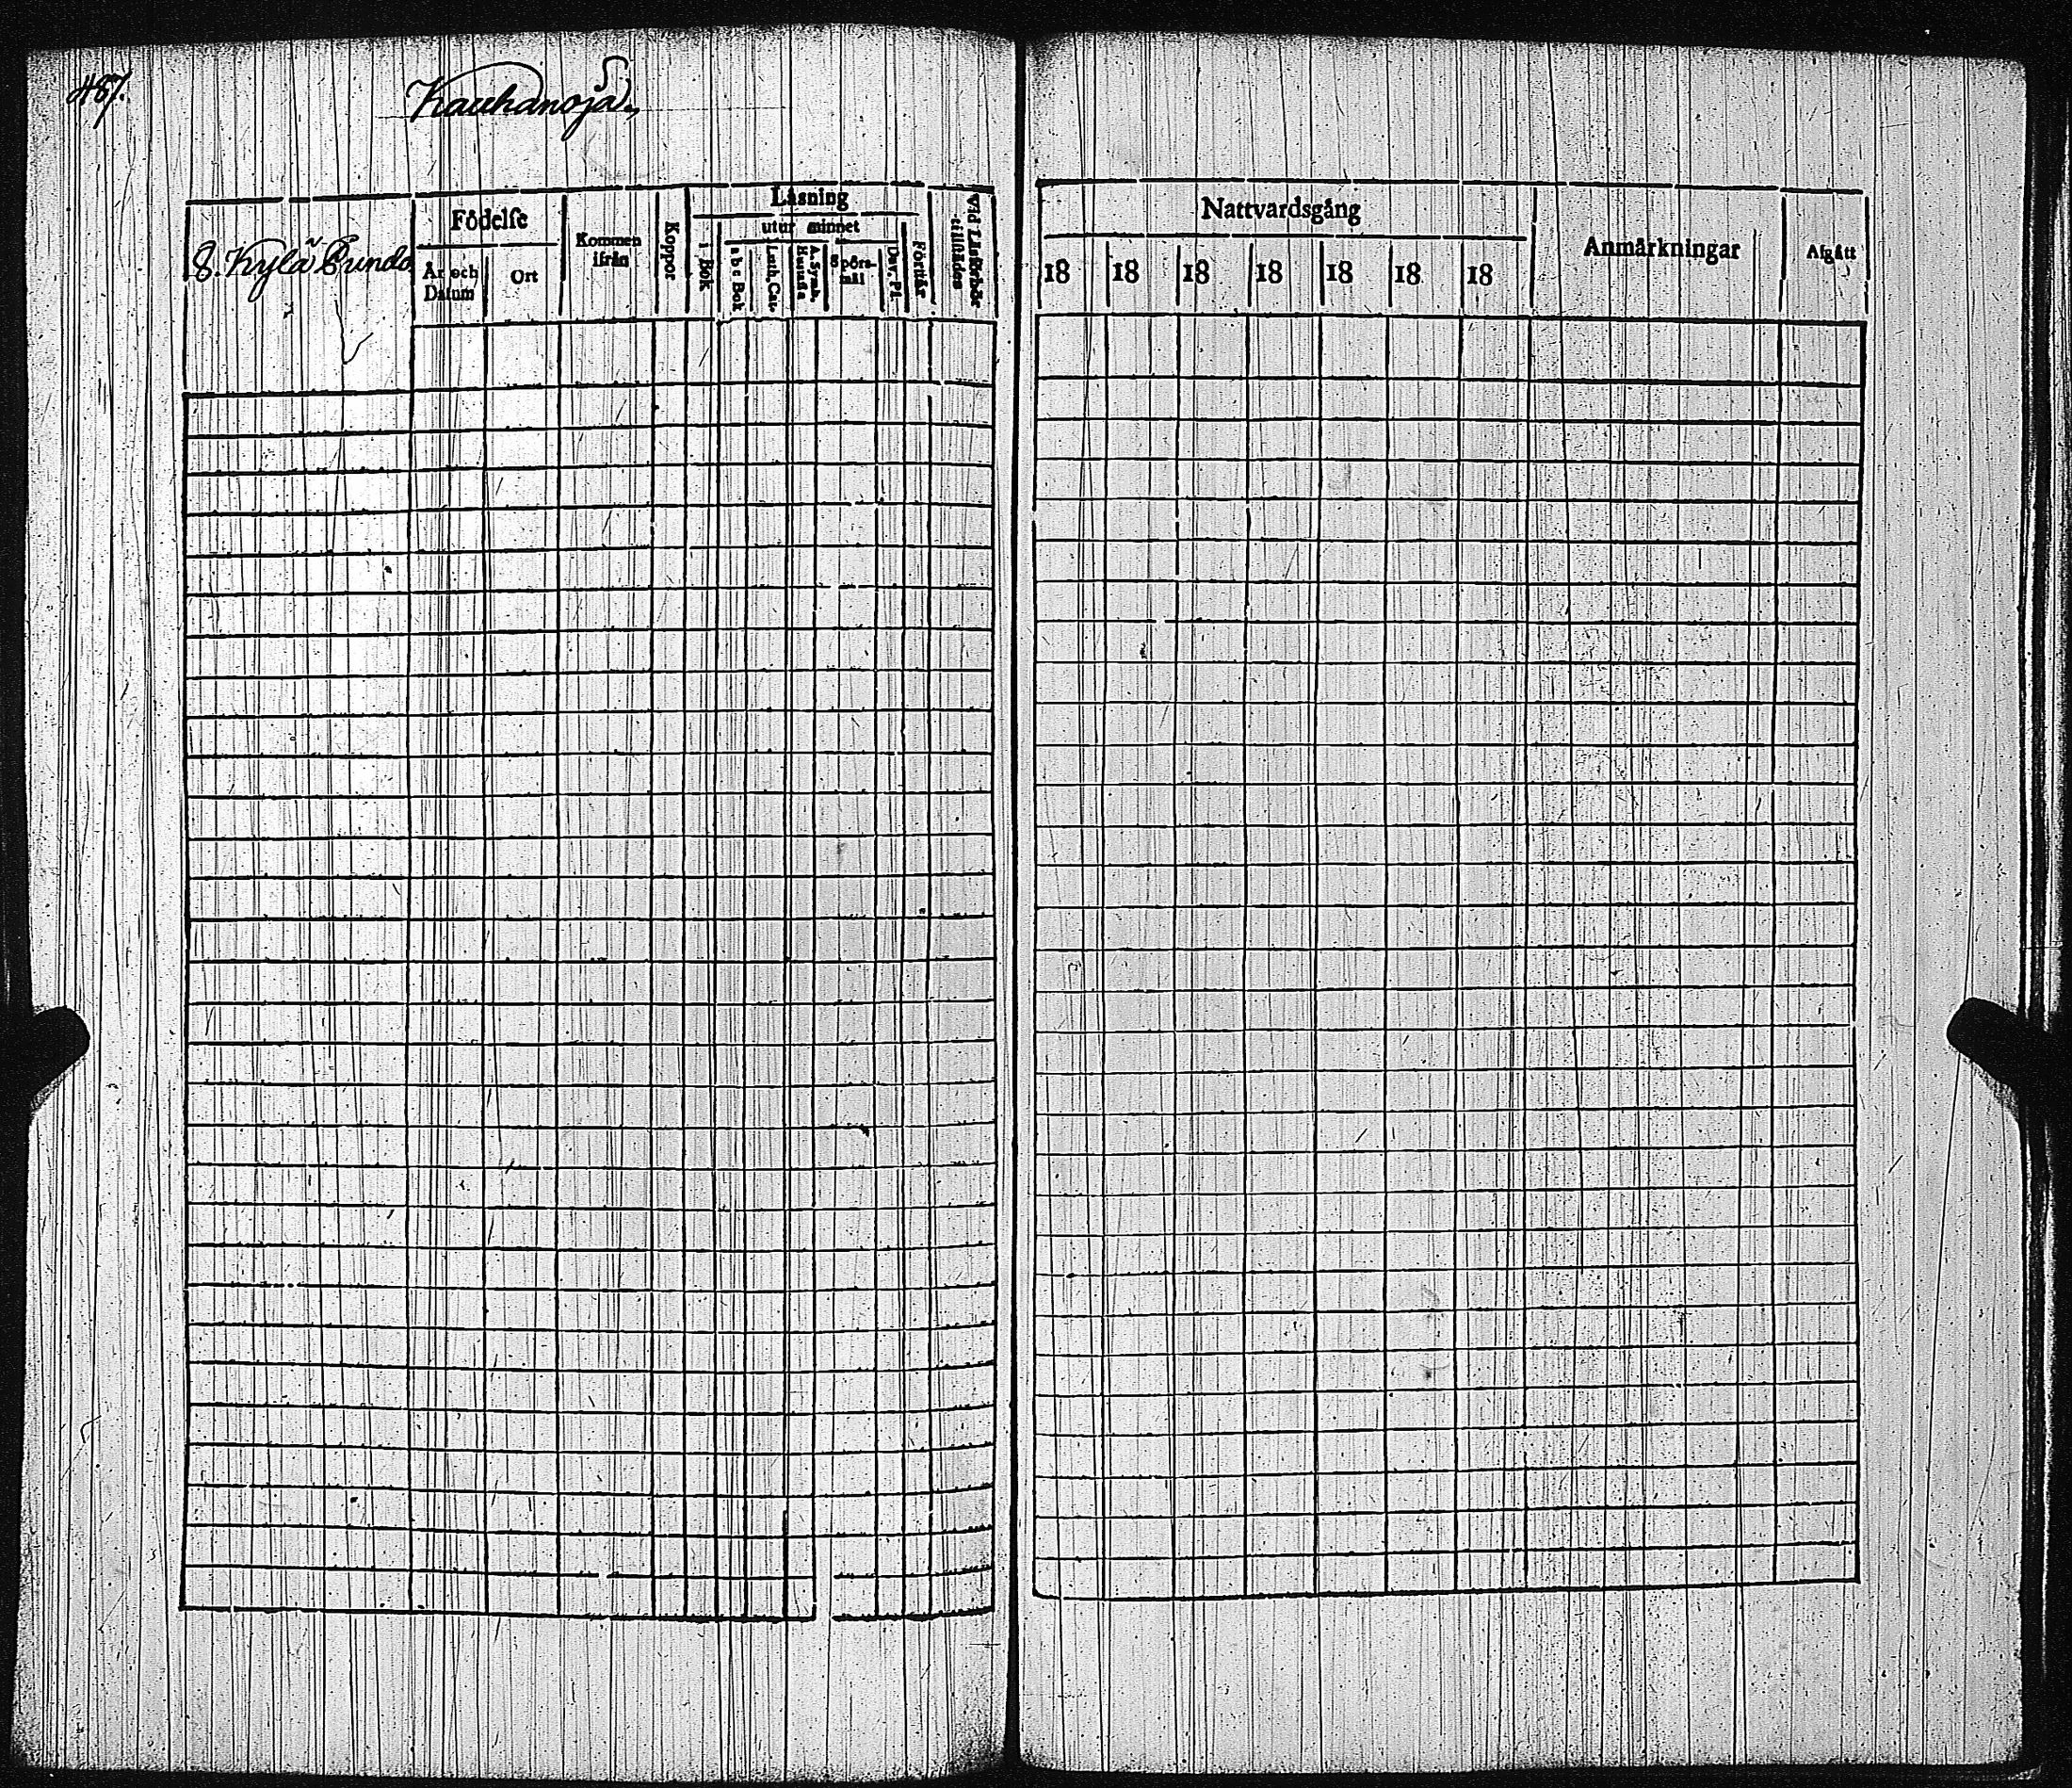 487.
Kauhanoja
8. Kylä Pundo
Födelse
År och Datum
Ort
Kommen ifrån
Koppor
Läsning
i Bok
utur minnet
a b c Bok
Luth. Cat.
A. Symb. Hustafla
Spörs-mål
Dav. Ps.
Förstår
Vid Läsförhör tillstädes
Nattvardsgång
18 18 18 18 18 18 18
Anmärkningar
Afgått